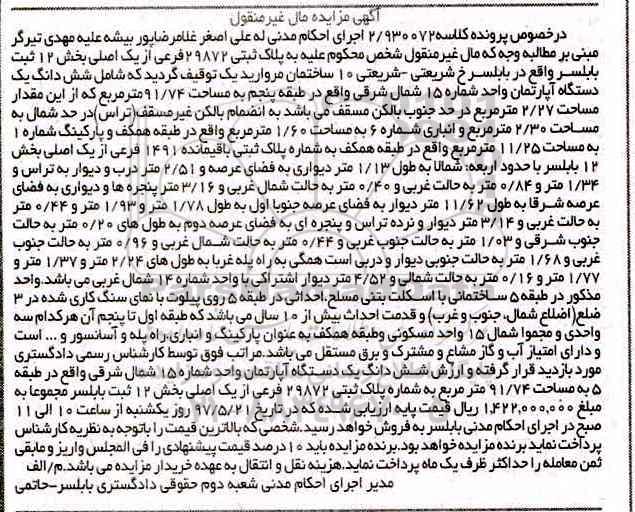 آگهی مزایده مال غیرمنقول
درخصوص پرونده کلاسه ۲/۹۳۰۰۷۲ اجرای احکام مدنی له علی اصغر غلامرضاپور بیشه علیه مهدی تیرگر
مبنی بر مطالبه وجه که مال غیرمنقول شخص محکوم علیه به پلاک ثبتی ۲۹۸۷۲ فرعی از یک اصلی بخش ۱۲ ثبت
بابلسر واقع در بابلسر خ شریعتی -شریعتی ۱۰ ساختمان مروارید یک توقیف گردید که شامل شش دانگ یک
دستگاه آپارتمان واحد شماره ۱۵ شمال شرقی واقع در طبقه پنجم به مساحت ۹۱/۷۴ مترمربع که از این مقدار
مساحت ۲/۲۷ مترمربع در حد جنوب بالکن مسقف می باشد به انضمام بالکن غیرمسقف(تراس)در حد شمال به
مساحت ۲/۳۰ مترمربع و انباری شماره ۶ به مساحت ۱/۶۰ مترمربع واقع در طبقه همکف و پارکینگ شماره ۱
به مساحت ۱۱/۲۵ مترمربع واقع در طبقه همکف به شماره پلاک ثبتی باقیمانده ۱۴۹۱ فرعی از یک اصلی بخش
۱۲ بابلسر با حدود اربعه: شمالا به طول ۱/۱۳ متر دیواری به فضای عرصه و ۲/۵۱ متر درب و دیوار به تراس و
۱/۳۴ متر و ۰/۸۴ متر به حالت غربی و ۰/۴۰ متر به حالت شمال غربی و ۳/۱۶ متر پنجره ها و دیواری به فضای
عرصه شرقا به طول ۱۱/۶۲ متر دیوار به فضای عرصه جنوبا اول به طول ۱/۷۸ متر و ۱/۹۳ متر و ۰/۴۴ متر
به حالت غربی و ۳/۱۴ متر دیوار و نرده تراس و پنجره ای به فضای عرصه دوم به طول های ۰/۲۰ متر به حالت
جنوب شرقی و ۱/۰۳ متر به حالت جنوب غربی و ۰/۴۴ متر به حالت شمال غربی و ۰/۹۶ متر به حالت جنوب
غربی و ۱/۶۸ متر به حالت جنوبی دیوار و دربی است همگی به راه پله غربا به طول های ۲/۲۴ متر و ۱/۳۷ متر و
۱/۷۷ متر و ۰/۱۶ متر به حالت شمالی و ۴/۵۲ متر دیوار اشتراکی با واحد شماره ۱۴ شمال غربی می باشد.واحد
مذکور در طبقه ۵ ساختمانی با اسکلت بتنی مسلح،احداثی در طبقه ۵ روی پیلوت با نمای سنگ کاری شده در ۳
ضلع(اضلاع شمال، جنوب و غرب) و قدمت احداث بیش از ۱۰ سال می باشد که طبقه اول تا پنجم آن هرکدام سه
واحدی و مجموا شمال ۱۵ واحد مسکونی وطبقه همکف به عنوان پارکینگ و انباری،راه پله و آسانسور و ... است
و دارای امتیاز آب و گاز مشاع و مشترک و برق مستقل می باشد.مراتب فوق توسط کارشناس رسمی دادگستری
مورد بازدید قرار گرفته و ارزش شش دانگ یک دستگاه آپارتمان واحد شماره ۱۵ شمال شرقی واقع در طبقه
۵ به مساحت ۹۱/۷۴ متر مربع به شماره پلاک ثبتی ۲۹۸۷۲ فرعی از یک اصلی بخش ۱۲ ثبت بابلسر مجموعا به
مبلغ ۱,۴۲۲,۰۰۰,۰۰۰ ریال قیمت پایه ارزیابی شده که در تاریخ ۹۷/۵/۲۱ روز یکشنبه از ساعت ۱۰ الی ۱۱
صبح در اجرای احکام مدنی بابلسر به فروش خواهد رسید.شخصی که بالاترین قیمت را باتوجه به نظریه کارشناس
پرداخت نماید برنده مزایده خواهد بود.برنده مزایده باید ۱۰درصد قیمت پیشنهادی را فی المجلس واریز و مابقی
ثمن معامله را حداکثر ظرف یک ماه پرداخت نماید.هزینه نقل و انتقال به عهده خریدار مزایده می باشد.م/الف
مدیر اجرای احکام مدنی شعبه دوم حقوقی دادگستری بابلسر-حاتمی